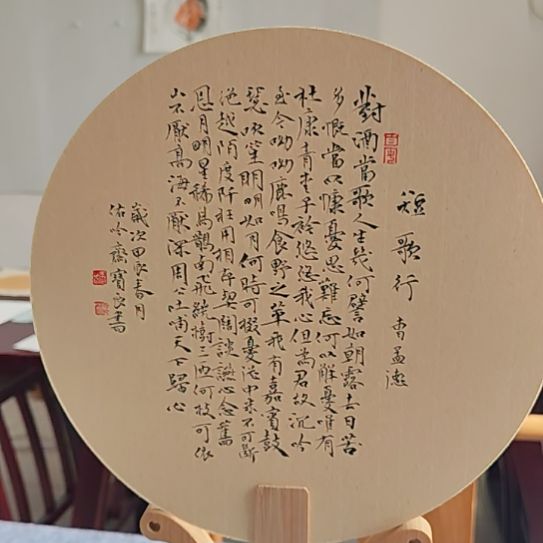 短歌行 曹孟德
對酒當歌人生幾何譬如朝露去日苦
多慨當以慷憂思難忘何以解憂唯有
杜康青青子衿悠悠我心但為君故沉吟
至今呦呦鹿鳴食野之苹我有嘉賓鼓
瑟吹笙明明如月何時可掇憂從中來不可斷
絕越陌度阡枉用相存契闊談讌心念舊
恩月明星稀烏鵲南飛繞樹三匝何枝可依
山不厭高海不厭深周公吐哺天下歸心
歲次甲辰春月
佑吟齋寶良書